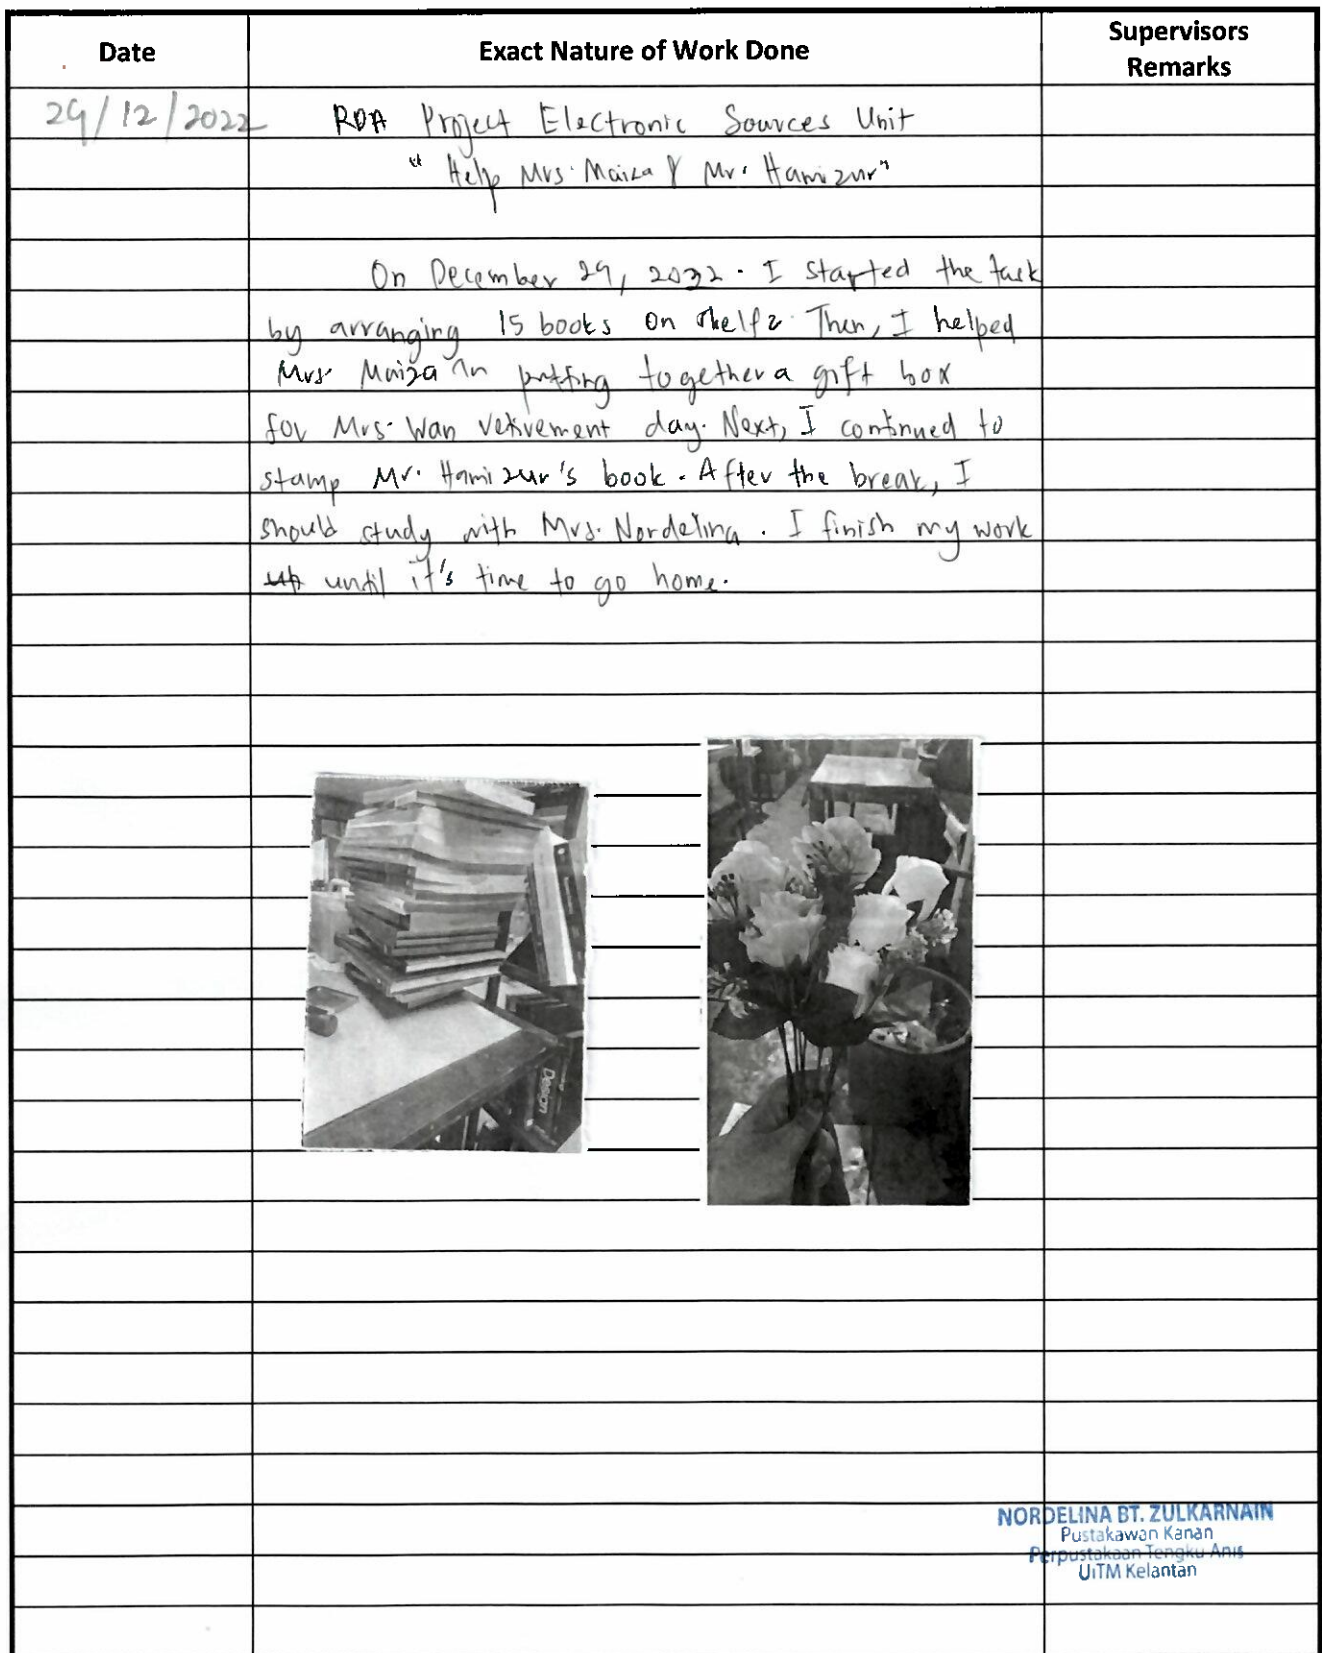 Date
Exact Nature of Work Done
Supervisors
Remarks
29/12/2022
RDA Project Electronic Sources Unit
"Help Mrs. Maiza & Mr. Hamizur"
On December 29, 2022. I started the task
by arranging 15 books on shelf 2. Then, I helped
Mrs. Maiza in putting together a gift box
for Mrs. Wan retirement day. Next, I continued to
stamp Mr. Hamizur's book. After the break, I
should study with Mrs. Nordelina. I finish my work
until it's time to go home.
Design
NORDELINA BT. ZULKARNAIN
Pustakawan Kanan
Perpustakaan Tengku Anis
UiTM Kelantan